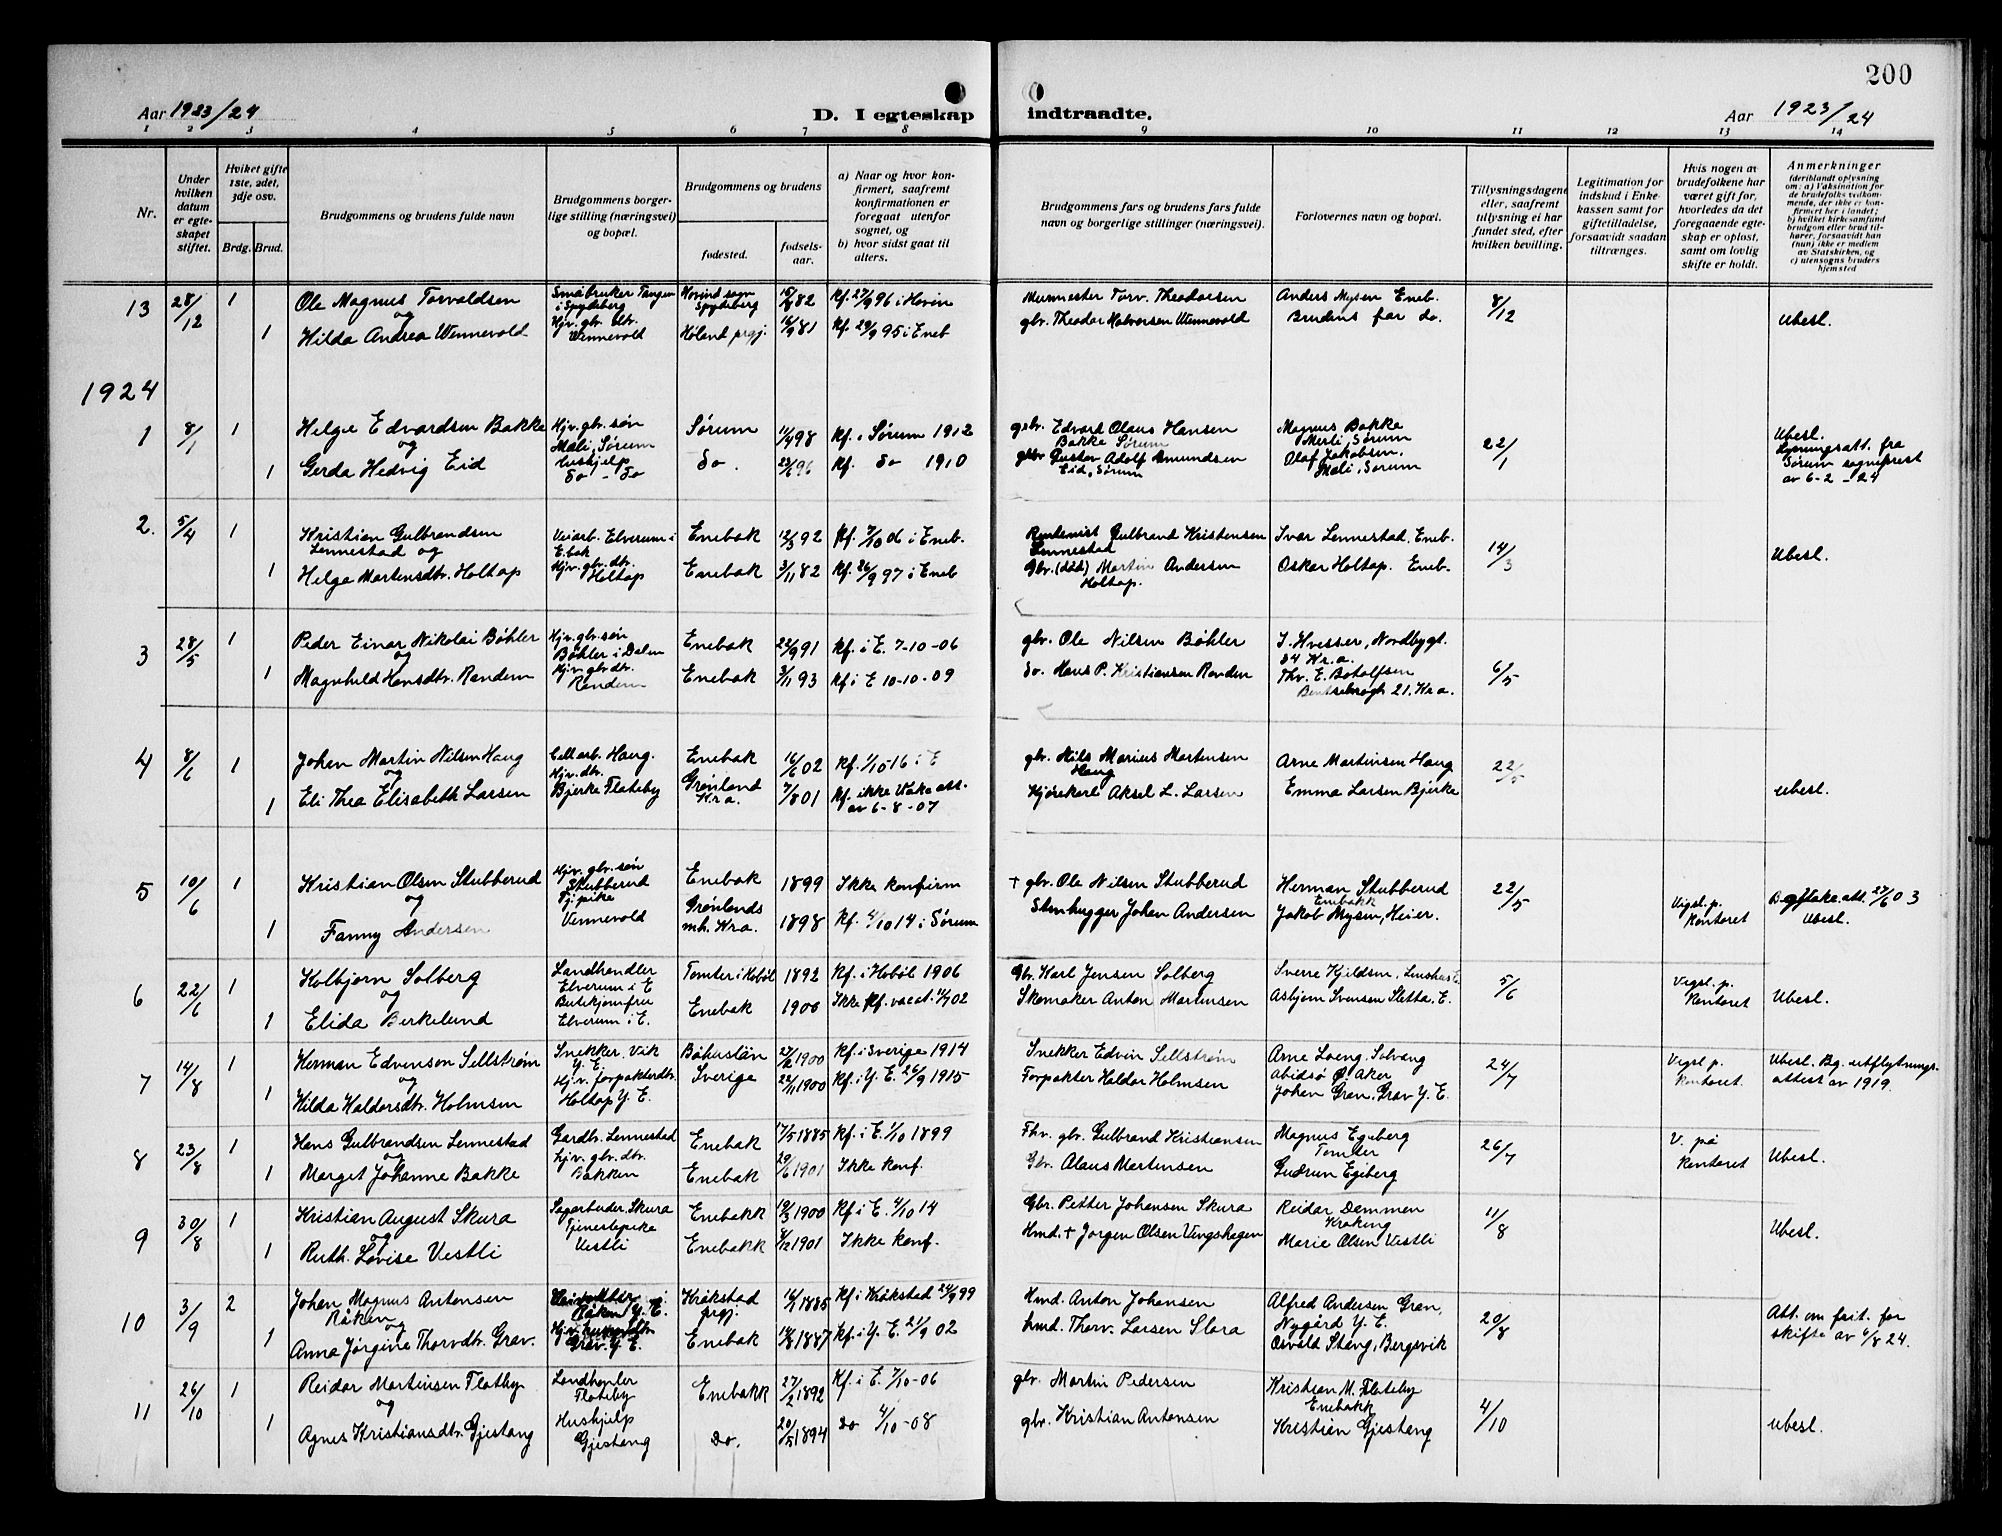 200
Aar 1923/24
D. I egteskap
indtraadte.
Aar 1923/24
1 2 3 4 5 6 7 8 9 10 11 12 13 14
Nr.
Under hvilken datum er egte- skapet stiftet.
Hvilket gifte 1ste, 2det, 3dje osv.
Brdg. Brud.
Brudgommens og brudens fulde navn
Brudgommens borger- lige stilling (næringsvei) og bopæl.
Brudgommens og brudens
fødested.
fødsels- aar.
a) Naar og hvor kon- firmert, saafremt konfirmationen er foregaat utenfor sognet, og
b) hvor sidst gaat til alters.
Brudgommens fars og brudens fars fulde navn og borgerlige stillinger (næringsvei).
Forlovernes navn og bopæl.
Tillysningsdagene eller, saafremt tillysning ei har fundet sted, efter hvilken bevilling.
Legitimation for indskud i Enke- kassen samt for giftetilladelse, forsaavidt saadan tiltrænges.
Hvis nogen av brudefolkene har været gift før, hvorledes da det foregaaende egte- skap er opløst, samt om lovlig skifte er holdt.
Anmerkninger
(deriblandt oplysning om: a) Vaksination for de brudefolks vedkom- mende, der ikke er kon- firmert her i landet; b) hvilket kirkesamfund brudgom eller brud til- hører, forsaavidt han (hun) ikke er medlem av Statskirken, og c) utensogns bruders hjemsted
13 28/12 1 Ole Magnus Torvaldsen Småbruker Tangen i Spydeberg Hovind som Spydeberg 15/8 82 Kf. 27/9 96 i Hovin Murmester Torv. Theodorsen Anders Mysen Eneb. 8/12
og
1 Hilda Andrea Wennevold Hjv. gbr. dtr. Wennevold Høland prgj. 16/9 81 Kf. 29/9 95 i Eneb gbr. Theodor Halvorsen Wennevold Brudens far do. Ubesl.
1924
1 8/1 1 Helge Edvardsen Bakke Hjv. gbr. søn Mæli, Sørum Sørum 11/4 98 Kf. i Sørum 1912 gbr. Edvart Olaus Hansen Bakke Sørum Magnus Bakke Mæli, Sørum 22/1 Ubesl.
og
1 Gerda Hedvig Eid Hushjelp do - do do. 23/6 96 Kf. do 1910 gbr Gustav Adolf Amundsen Eid, Sørum Olaf Jakobsen, Mæli, Sørum Lysningsatt. fra Sørum sogneprest av 6-2-24
2. 5/4 1 Kristian Gulbrandsen Lennestad og Veiarb. Elverum i E.bak Enebak 12/3 92 Kf. 7/10 06 i Eneb. Rentenist Gulbrand Kristensen Lennestad Ivar Lennestad. Eneb. 14/3 Ubesl.
1 Helga Martensdtr. Holtop Hjv. gbr. dtr. Holtop Enebak 3/11 82 Kf. 26/9 97 i Eneb Gbr. (død) Martin Andersen Holtop. Oskar Holtop. Eneb.
3 28/5 1 Peder Einar Nikolai Bøhler Hjv. gbr. søn Bøhler i Dalen Enebak 22/9 91 Kf. i E. 7-10-06 gbr. Ole Nilsen Bøhler I. Hvesser, Nordbygt. 34 Kr.a. 6/5
og
1 Magnhild Hansdtr. Randem Hjv. gbr. dtr. Randem Enebak 3/11 93 Kf i E 10-10-09 do. Hans P. Kristiansen Randem Thv. E. Botolfsen Bentsebrogt 21. Kr.a.
4 8/6 1 Johan Martin Nilsen Haug Cellarb. Haug. Enebak 16/6 02 Kf. 1/10-16 i E gbr. Nils Marius Martensen Haug Arne Martinsen Haug 22/5
og
1 Eli Thea Elisabeth Larsen Hjv. dtr. Bjerke Flateby Grønland Kr.a. 7/8 01 Kf. ikke Vake att. av 6-8-07 Kjørekarl Aksel L. Larsen Emma Larsen Bjerke Ubesl.
5 10/6 1 Kristian Olsen Stubberud Hjv. gbr. søn Stubberud Enebak 1899 Ikke konfirm + gbr. Ole Nilsen Stubberud Herman Stubberud Enbakk 22/5 Vigsl. p. kontoret
og
1 Fanny Andersen Tj.pike Vennevold Grønlands mh. Kr.a. 1898 Kf. 4/10 14 i Sørum Stenhugger Johan Andersen Jakob Mysen, Heier. Ubesl.
6 22/6 1 Kolbjørn Solberg Landhandler Elverum i E Tomter i Hobøl 1892 Kf. i Hobøl 1906 Gbr. Karl Jensen Solberg Sverre Kjeldsen, 5/6 Vigsl. p. kontoret Ubesl.
og
1 Elida Berkelund Butikjomfru Elverum i E. Enebak 1900 Ikke Kf. Skomaker Anton Martensen Asbjørn Svensen Sletta, E.
7 14/8 1 Herman Edvenson Sellstrøm Snekker. Vik Y. E. Båhuslän 27/2 1900 Kf. i Sverige 1914 Snekker Edvin Sellstrøm Arne Loeng. Solvang Abidsø Ø. Aker 24/7 Vigsl. p. kontoret Ubesl. Bg. utflytnings- attest av 1919.
og
1 Hilda Haldorsdtr. Holmsen Hjv. forpakterdtr. Holtop Y. E. Sverige 22/11 1900 Kf. i Y. E. 26/9 1915 Forpakter Haldor Holmsen Johan Gran, Grav Y. E.
8 23/8 1 Hans Gulbrandsen Lennestad Gardbr. Lennestad Enebak 17/5 1885 Kf. i E. 1/10 1899 Fhv. gbr. Gulbrand Kristiansen Magnus Egeberg Tomter 26/7 V. på kontoret Ubesl.
og
1 Marget Johanne Bakke hjv. gbr. dtr. Bakken Enebak 29/6 1901 Ikke konf. Gbr. Olaus Martensen Gudrun Egeberg
9 30/8 1 Kristian August Skura Sagarbeider, Skura Enebakk 19/3 1900 Kf i E. 4/10 14 Gbr. Petter Johansen Skura Reidar Dammen Kroking 11/8 Ubesl.
og
1 Ruth. Lovise Vestli Tjenestepike Vestli Enebakk 4/12 1901 Ikke konf. Hmd. + Jørgen Olsen Vengshagen Marie Olsen Vestli
10 3/9 2 Johan Magnus Antonsen Råken Råken Y. E. Kråkstad prgj. 16/2 1885 Kf i Kråkstad 24/9 99 Hmd. Anton Johansen Alfred Andersen Gran, Nygård Y. E. 20/8 Att. om frit. for skifte av 4/8 24.
og
1 Anna Jørgine Thorvdtr. Grav. Grav. Y. E. Enebak 14/8 1887 Kf i Y. E. 21/9 02 hmd. Thorv. Larsen Slora Osvald Stang, Bergsvik
11 26/10 1 Reidar Martinsen Flateby Landhanler Flateby Enebakk 27/2 1892 Kf. i E. 7/10-06 gbr. Martin Pedersen Kristian M. Flateby Enebakk 4/10 Ubesl.
og
1 Agnes Kristiansdtr. Gjestang Hushjelp Gjestang Do. 20/5 1894 do 4/10-08 gbr. Kristian Antonsen Kristian Gjestang